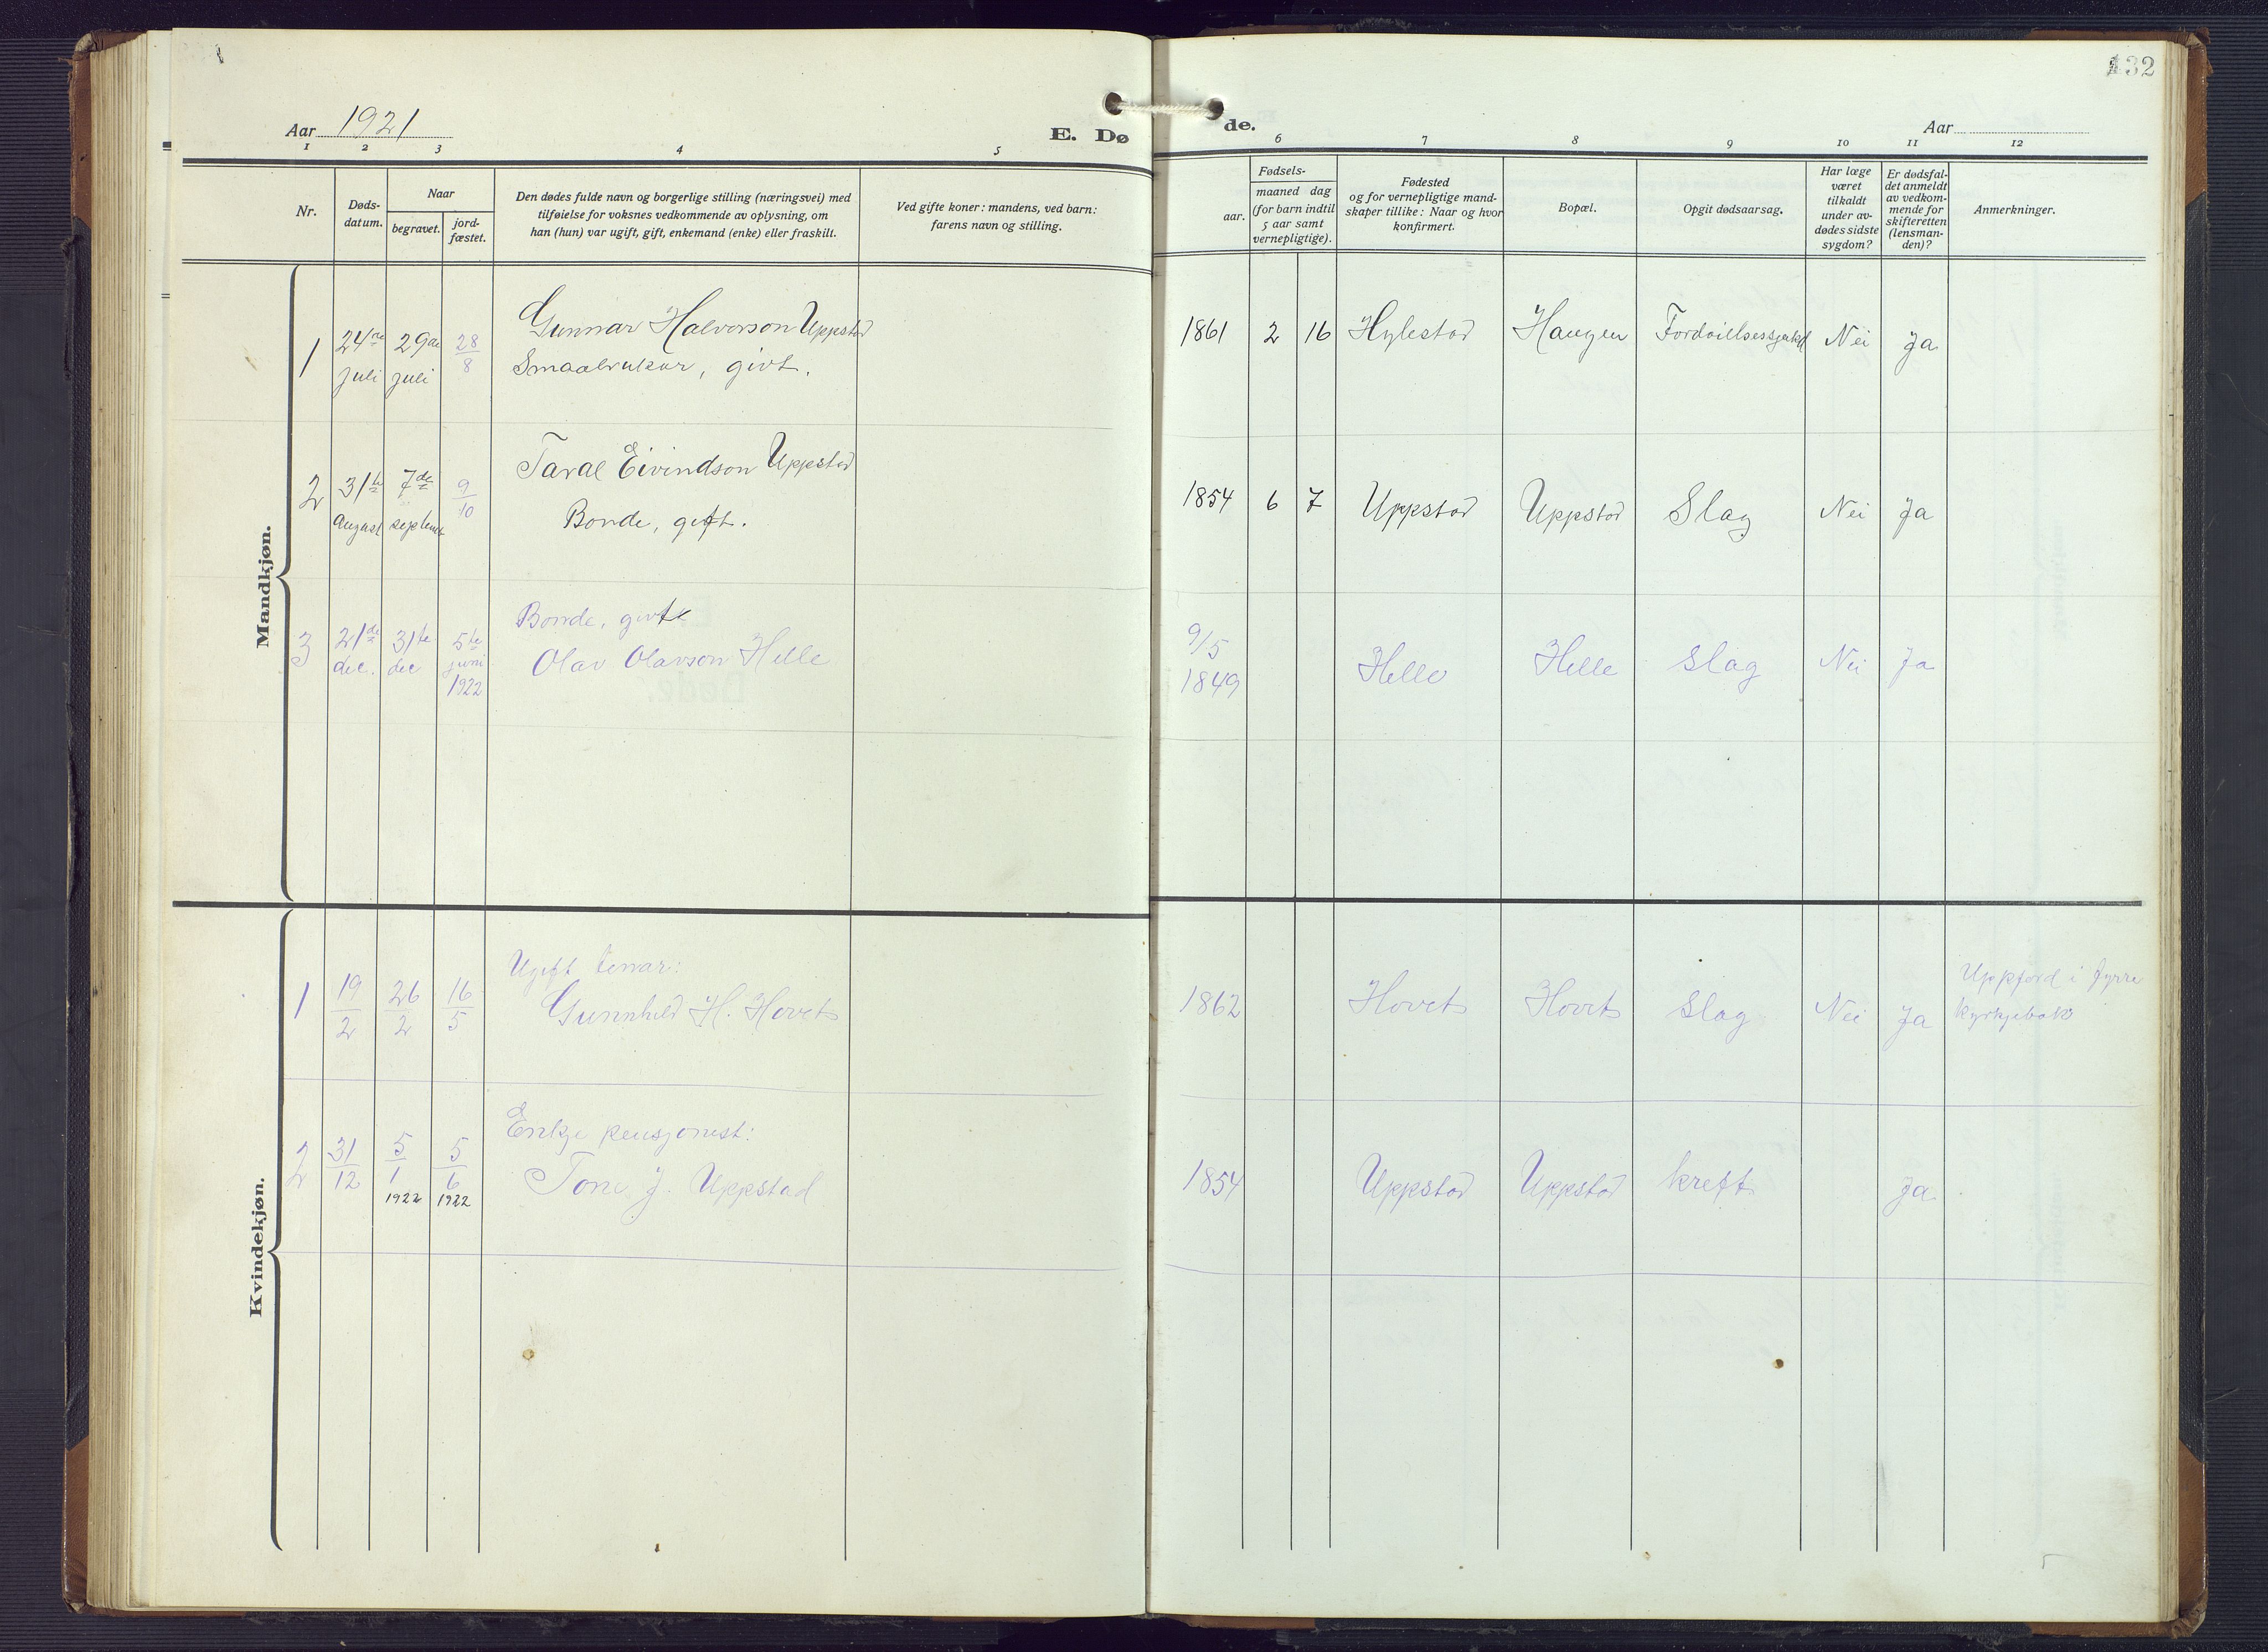 132
Aar 1921
E. Dø
de.
Aar
1 2 3 4 5 6 7 8 9 10 11 12
Nr.
Døds-
datum.
Naar
begravet.
jord-
fæstet.
Den dødes fulde navn og borgerlige stilling (næringsvei) med
tilføielse for voksnes vedkommende av oplysning, om
han (hun) var ugift, gift, enkemand (enke) eller fraskilt.
Ved gifte koner: mandens, ved barn:
farens navn og stilling.
Fødsels-
aar.
maaned dag
(for barn indtil
5 aar samt
vernepligtige).
Fødested
og for vernepligtige mand-
skaper tillike: Naar og hvor
konfirmert.
Bopæl.
Opgit dødsaarsag.
Har læge
været
tilkaldt
under av-
dødes sidste
sygdom?
Er dødsfal-
det anmeldt
av vedkom-
mende for
skifteretten
(lensman-
den)?
Anmerkninger.
Mandkjøn.
1 24re juli 29de juli 28/8 Gunnar Halvorson Uppstad
Smaabrukar, givt.
1861 2 16 Hylestad Haugen Nei Ja
2 31te august 7de september 9/10 Taral Eivindson Uppstad
Bonde, gift.
1854 6 7 Uppstad Uppstad Slag Nei Ja
3 21de dec. 31te dec 5te juni 1922 Bonde, givt
Olav Olavson Helle
9/5 1849 Helle Helle Slag Nei Ja
Kvindekjøn.
1 19/2 26/2 16/5 Ugift tenar:
Gunnhild H. Hovet
1862 Hovet Hovet Slag Nei Ja Uppførd i fyrre
kyrkjebok
2 31/12 5/1 1922 5/6 1922 Enkje pensjonist:
Tone J. Uppstad
1854 Uppstad Uppstad kreft Ja